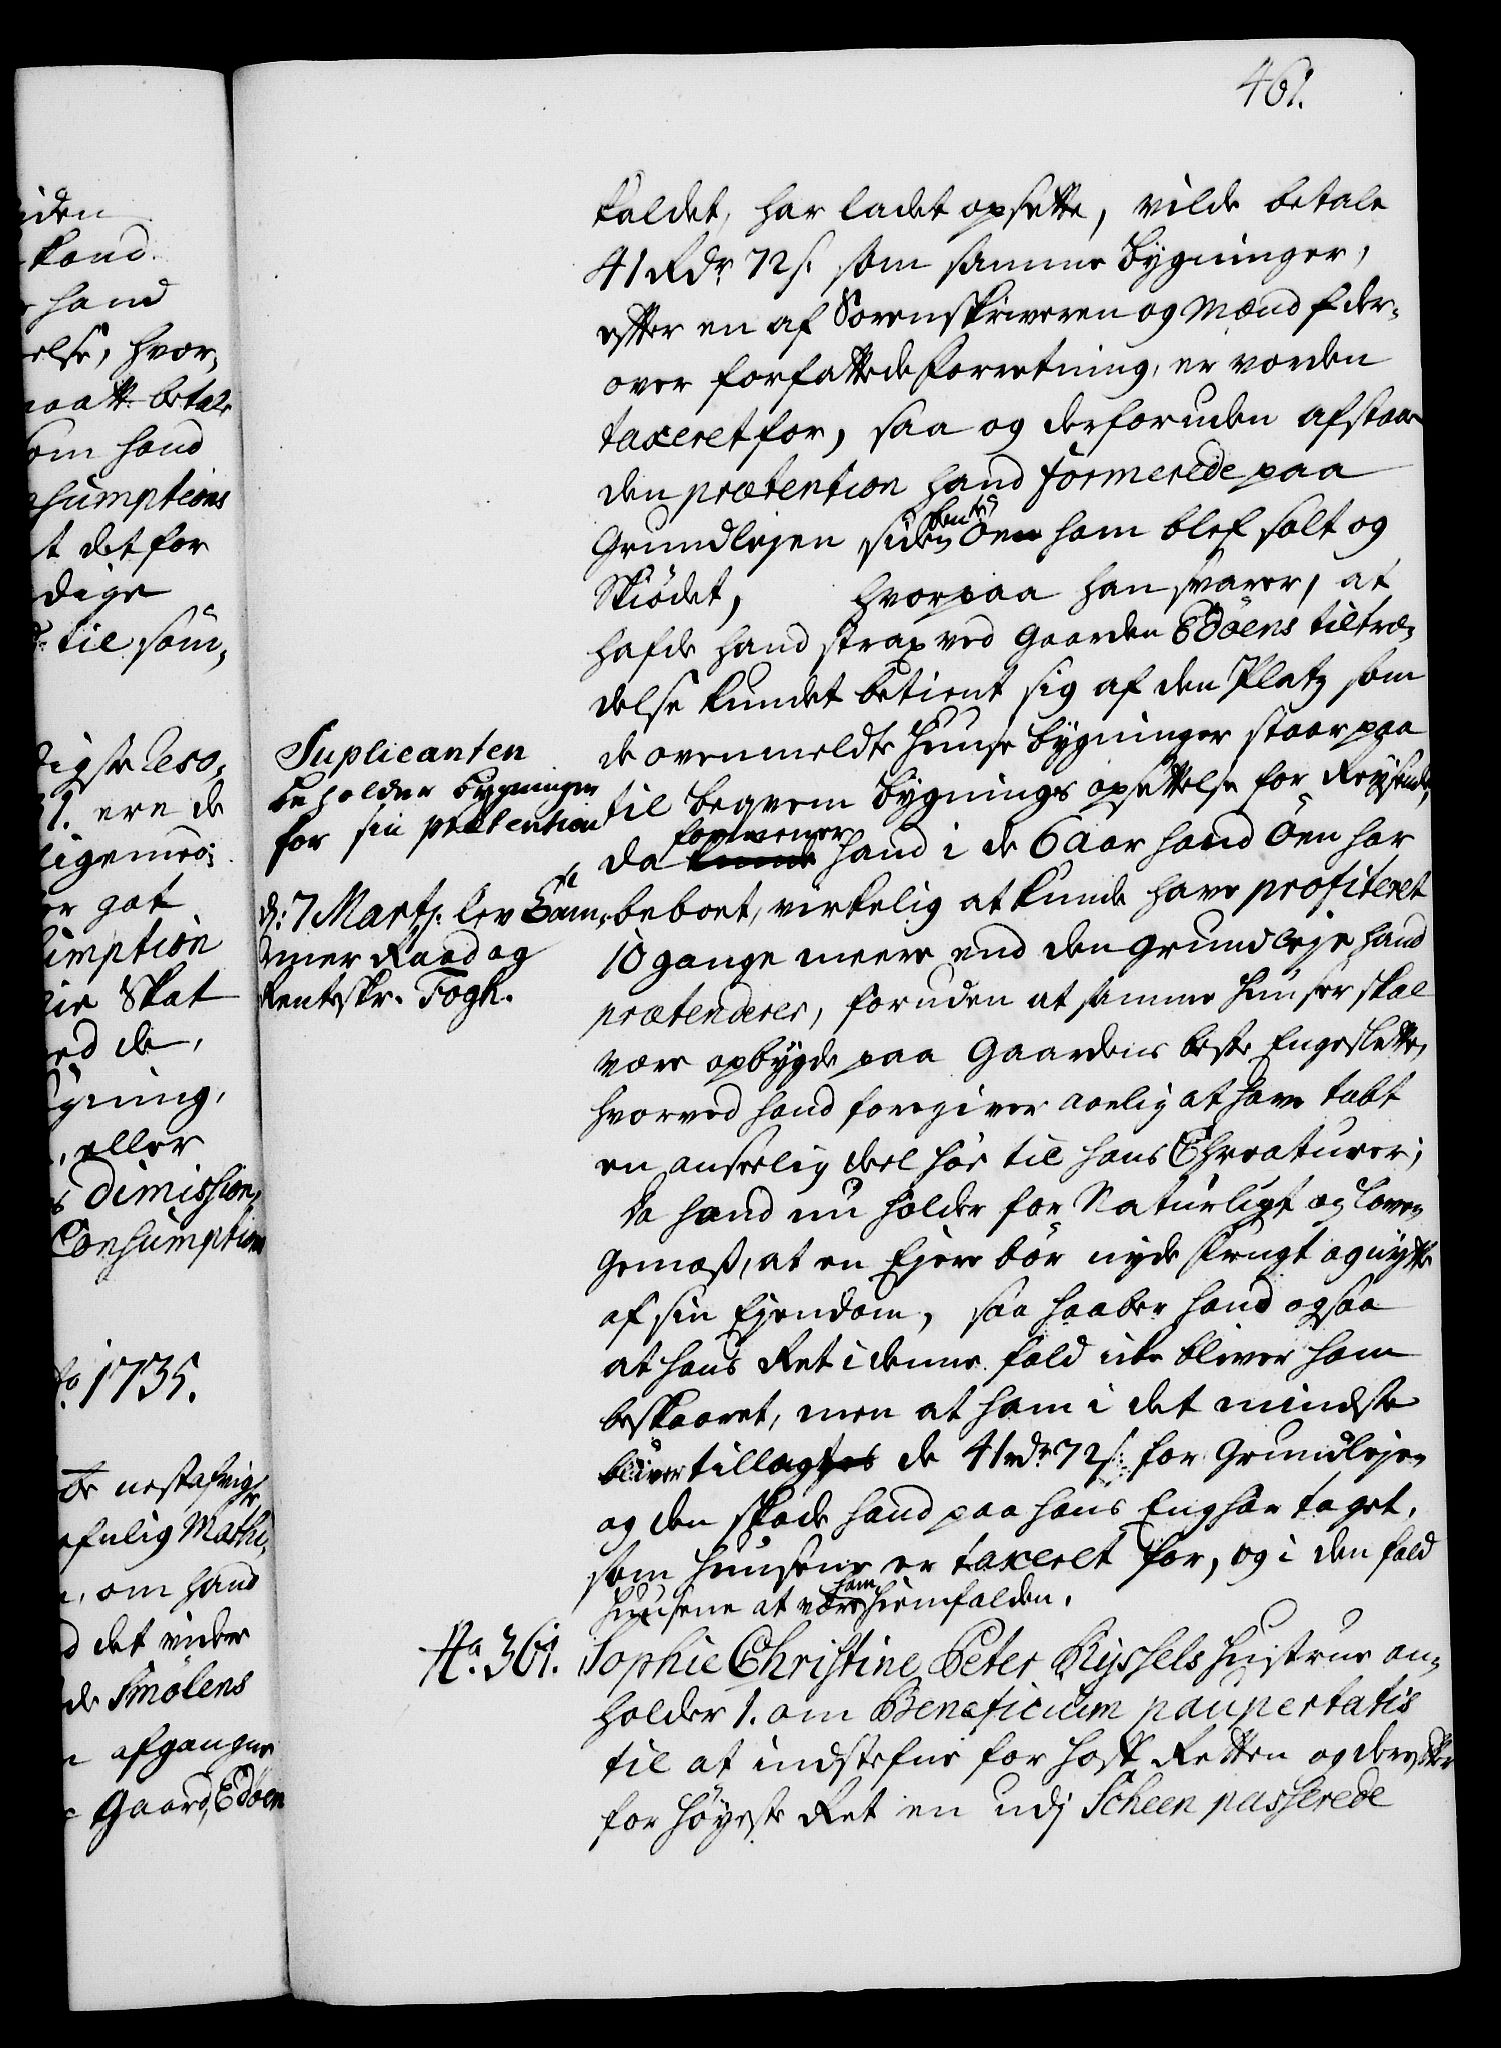 461.
kaldet, har ladet opsætte, vilde betale
41 Rdr 72 s. som samme bygninger,
efter en af Sorenskriveren og Mænd der-
over forfattede forretning, er vorden
taxeret for, saa og derforuden afstaae
den prætention hand formerede paa
Grundlejen siden bemte Öen ham blef solt og
Skiödet, hvorpaa han svarer, at
hafde hand strax ved Gaarden Edöens tiltræ-
delse kundet betient sig af den Platz som
de ovenmeldte Huuse bygninger staar paa
til beqvem bygnings opsettelse for Reysende,
da formener hand i de 6 aar hand Öen har
beboet, virkelig at kunde have profiteret
10 gange meere end den grundleje hand
prætenderer, foruden at samme Huuser skal
være opbygde paa Gaardens beste Engeslette,
hvorved hand foregiver aarlig at have tabt
en anseelig deel höe til hans Chreaturer;
da hand nu holder for Naturligt og Lov-
gemæs, at en Ejere bör nyde frugt og nytte
af sin Ejendom, saa haaber hand ogsaa
at hans Ret i denne fald icke bliver ham
beskaaret, men at ham i det mindste
bliver tillagt de 41 rdr 72 s: for Grundlejen
og den skade hand paa hans Eng har taget,
som huusene er taxeret for, og i den fald
Huusene at være ham hiemfalden.
Suplicanten
beholder bygningen
for sin prætention
d: 7 Martj: lev Cam-
mer Raad og
Rentskr. Fogh.
No. 361. Sophie Christine Peter Ryssels Hustrue an-
holder 1. om Beneficium paupertatis
til at indstefne for Hoff Retten og derefter
for Höyeste Ret en udj Scheen passerede
iden
kand
hand
else, hvor-
maatte betale
som hand
nsumptions
t det for
dige
til som-
digste Reso-
31. ere de
ligemeo-
er gat
umption
ie Skat
ed de,
gning,
, eller
s Dimission,
Consumption
1735.
nestafvigte
Mathi-
, om hand
d det videre
de Smölens
afgangne
Gaard, Edöen